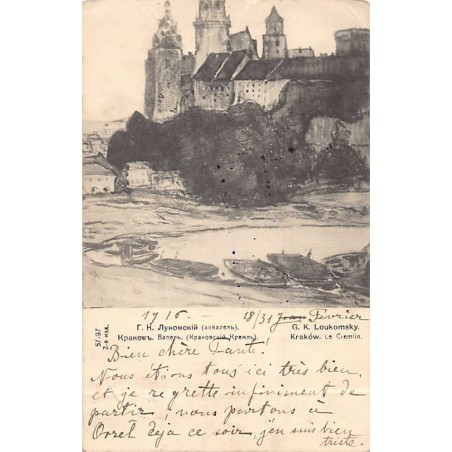 1916 - 18/31 Jean Février
Г. К. Лукомскій (акварель).
Краковъ. Вавель. (Краковскій Кремль).
G. K. Loukomsky.
Kraków. Le Cremlin.
57-97
2-е изд.
Bien chère Tante!
Nous étions tous ici très bien,
et je regrette infiniment de
partir, nous partons à
Orel déja ce soir, j'en suis bien
triste.